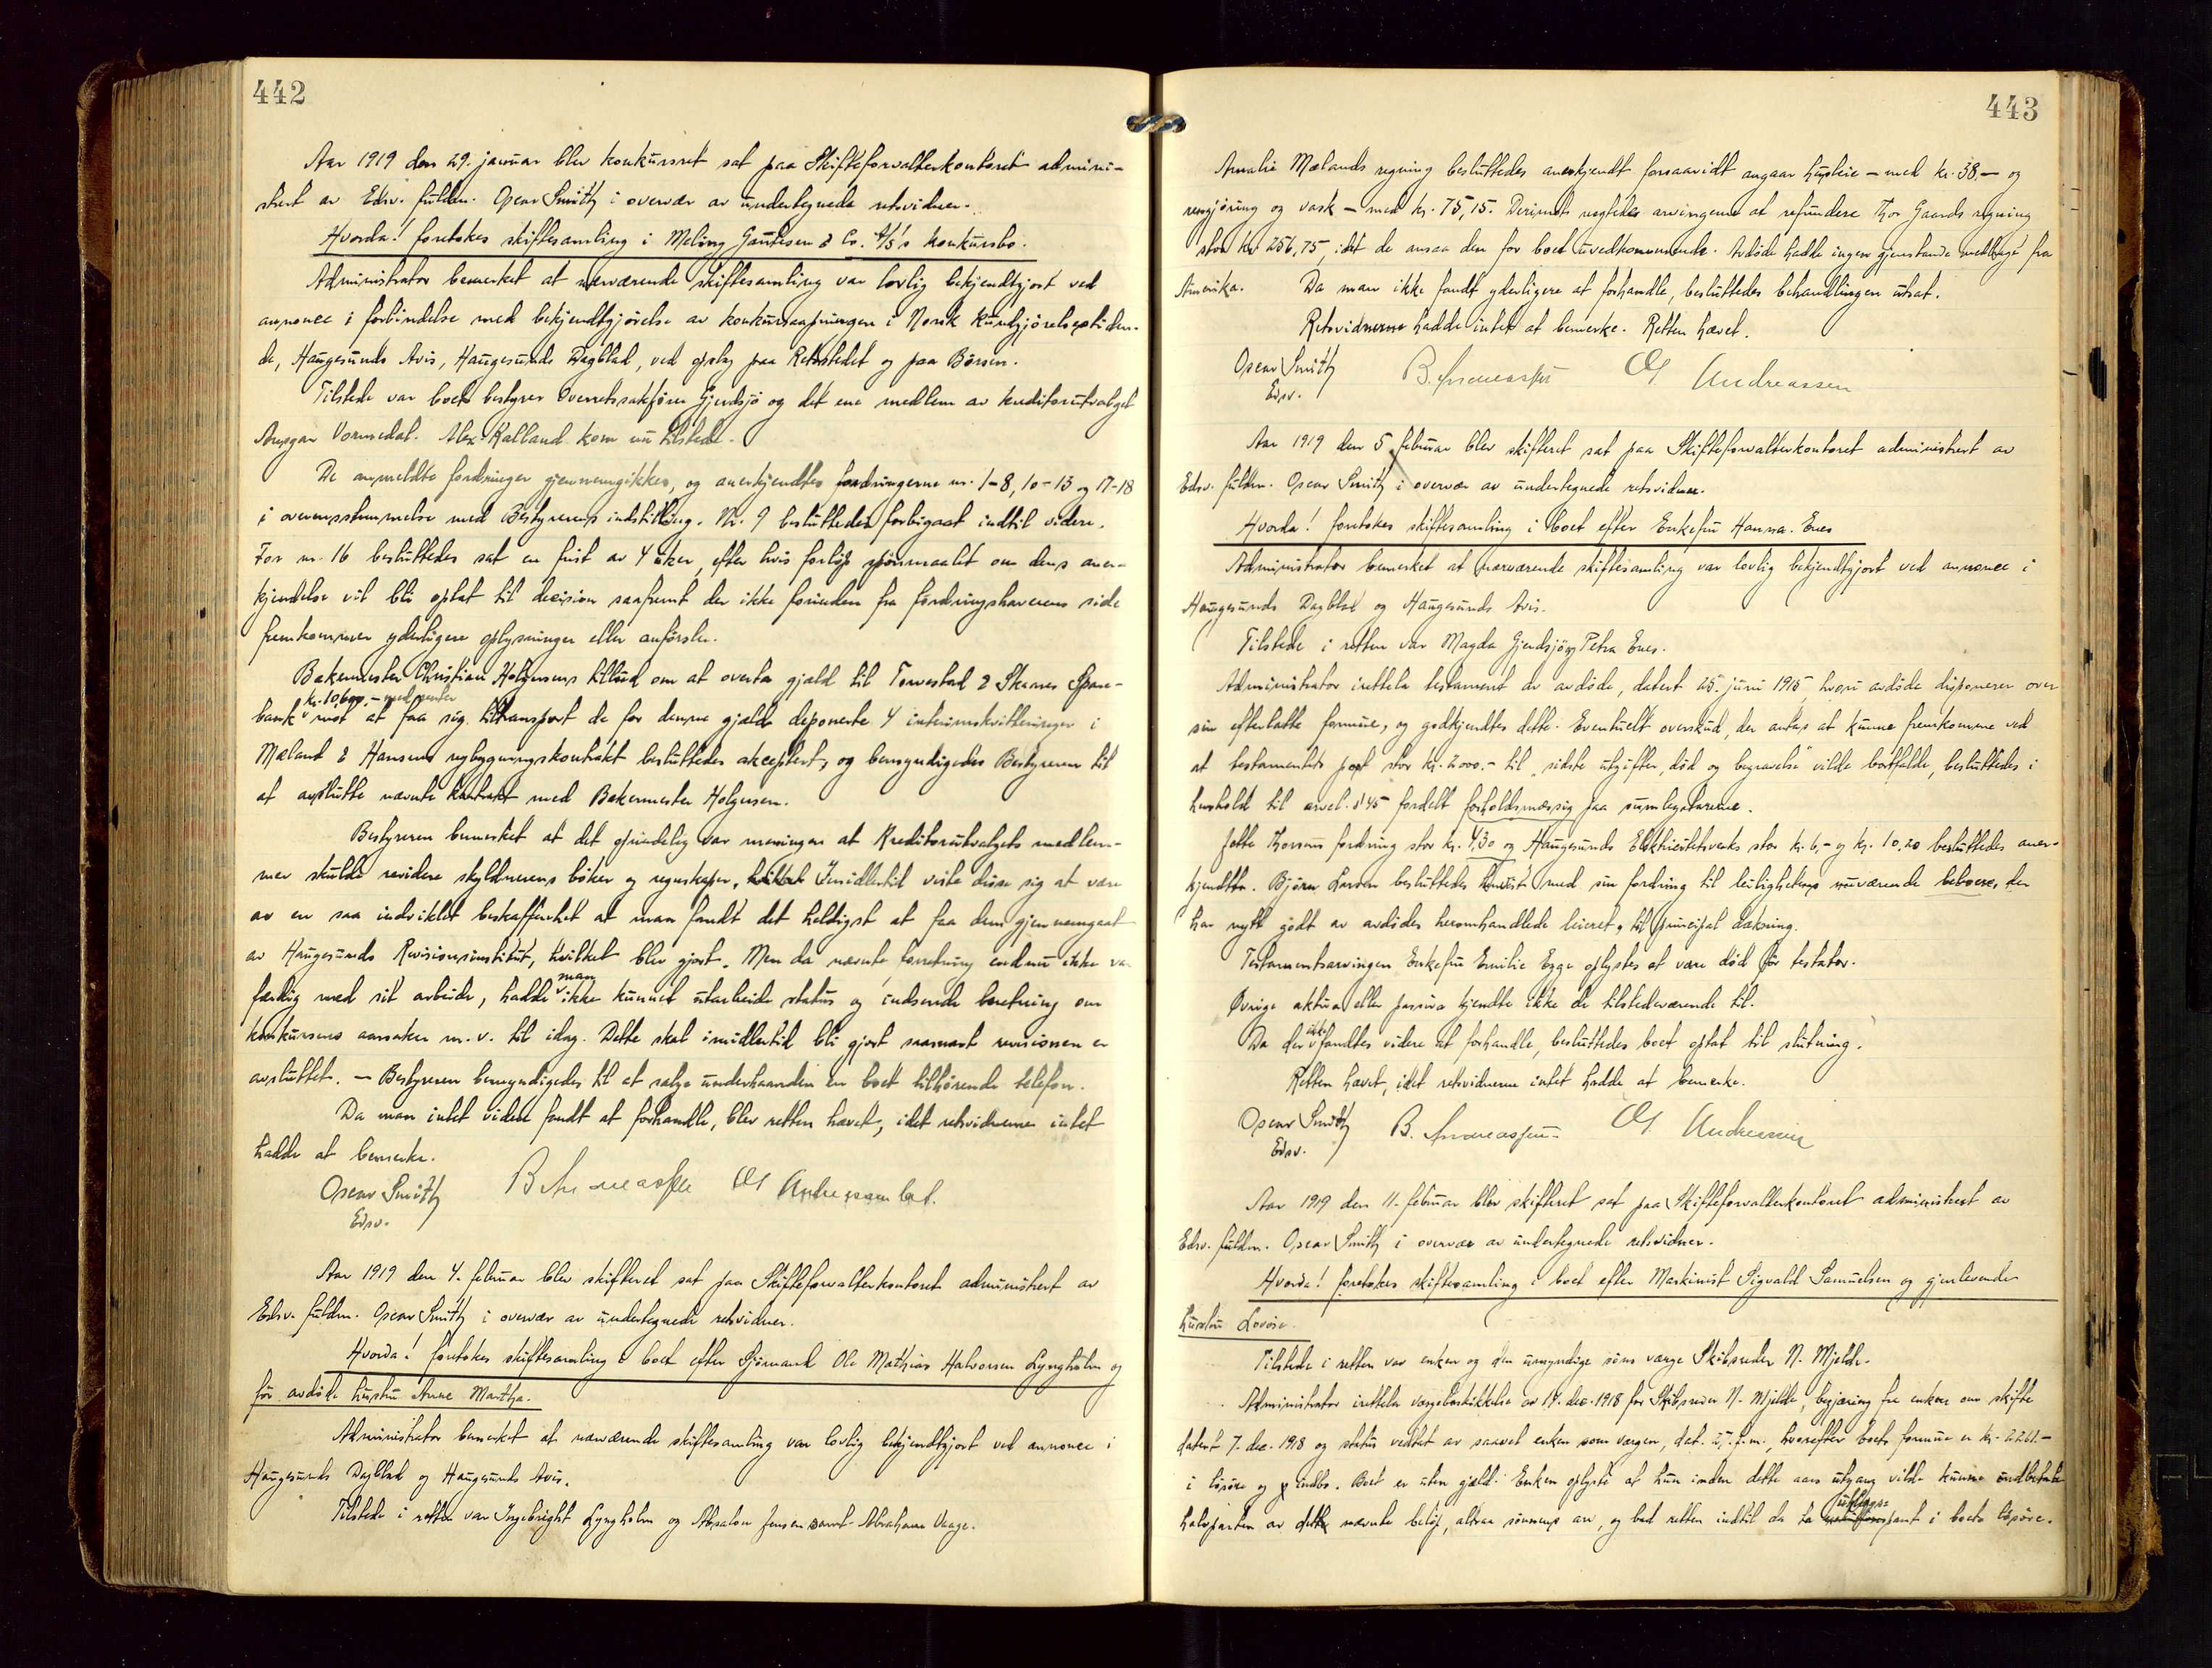 442
Aar 1919 den 29. januar blev konkursret sat paa Skifteforvalterkontoret admini-
strert av Edsv. fuldm. Oscar Smith i overvær av undertegnede retsvidner.
Hvorda! foretokes skiftesamling i Meling Gautesen & Co. A/S's konkursbo.
Administrator bemerket at nærværende skiftesamling var lovlig bekjendtgjort ved
annonce i forbindelse med bekjendtgjørelse av konkursaapningen i Norsk Kundgjørelsestiden-
de, Haugesunds Avis, Haugesunds Dagblad, ved opslag paa Retsstedet og paa Børsen.
Tilstede var boets bestyrer Overretssakfører Gjerdsjø og det ene medlem av kreditorutvalget
Ansgar Vormedal. Alex Kalland kom nu tilstede.
De anmeldte fordringer gjennemgikkes, og anerkjendtes fordringerne nr. 1-8, 10-15 og 17-18
i overensstemmelse med Bestyrerens indstilling. Nr. 9 besluttedes forbigaat indtil videre.
For nr. 16 besluttedes sat en frist av 4 uker, efter hvis forløp spørsmaalet om dens aner-
kjendelse vil bli optat til decision saafremt der ikke forinden fra fordringshaverens side
fremkommer yderligere oplysninger eller anførsler.
Bakermester Christian Holgersens tilbud om at overta gjæld til Torvestad & Skaares Spare-
kr. 10.600,- med renter
bank mot at faa sig tiltransport de for denne gjæld deponerte 4 interimskvitteringer i
Mæland & Hansens nybygningskontrakt besluttedes akceptert, og bemyndigedes Bestyreren til
at avslutte nævnte kontrakt med Bakermester Holgersen.
Bestyreren bemerket at det oprindelig var meningen at Kreditorutvalgets medlem-
mer skulde revidere skyldnerens bøker og regnskaper. Imidlertid viste disse sig at være
av en saa indviklet beskaffenhet at man fandt det heldigst at faa dem gjennemgaat
av Haugesunds Revisionsinstitut, hvilket blev gjort. Men da nævnte forretning endnu ikke va
man
færdig med sit arbeide, hadde ikke kunnet utarbeide status og indsende beretning om
konkursens aarsaker m. v. til idag. Dette skal imidlertid bli gjort saasnart revisionen er
avsluttet. — Bestyreren bemyndigedes til at sælge underhaanden en boet tilhørende telefon.
Da man intet videre fandt at forhandle, blev retten hævet, idet retsvidnerne intet
hadde at bemerke.
Oscar Smith B. Andreassen Andreassen
Edsv.
Aar 1919 den 4. februar blev skifteret sat paa Skifteforvalterkontoret administrert av
Edsv. fuldm. Oscar Smith i overvær av undertegnede retsvidner.
Hvorda! foretokes skiftesamling i boet efter Sjømand Ole Mathias Halvorsen Lyngholm og
før avdøde hustru Anne Martha.
Administrator bemerket at nærværende skiftesamling var lovlig bekjendtgjort ved annonce i
Haugesunds Dagblad og Haugesunds Avis.
Tilstede i retten var Ingebright Lyngholm og Absalon Jensen samt Abraham Vaage.
443
Amalie Mælands regning besluttedes anerkjendt forsaavidt angaar husleie - med kr. 38,- og
rengjøring og vask - med kr. 75,15. Derimot negtedes arvingene at refundere Thor Gaards regning
stor kr. 256,75, idet de ansaa den for boet uvedkommende. Avdøde hadde ingen gjenstande medbragt fra
Amerika. Da man ikke fandt yderligere at forhandle, besluttedes behandlingen utsat.
Retsvidnerne hadde intet at bemerke. Retten hævet.
Oscar Smith B. Andreassen Andreassen
Edsv.
Aar 1919 den 5. februar blev skifteret sat paa Skifteforvalterkontoret administrert av
Edsv. fuldm. Oscar Smith i overvær av undertegnede retsvidner.
Hvorda! foretokes skiftesamling i boet efter Enkefru Hanna Enes
Administrator bemerket at nærværende skiftesamling var lovlig bekjendtgjort ved annonce i
Haugesunds Dagblad og Haugesunds Avis.
Tilstede i retten var Magda Gjerdsjø og Petra Enes.
Administrator irettela testament av avdøde, datert 25. juni 1915 hvori avdøde disponerer over
sin efterlatte formue, og godkjendtes dette. Eventuelt overskud, der antas at kunne fremkomme ved
at testamentets post stor kr. 2000.- til "sidste utgifter, død og begravelse" vilde bortfalde, besluttedes i
henhold til arvel. § 45 fordelt forholdsmæssig paa sumlegatarene.
Jette Thorsens fordring stor kr. 4,30 og Haugesunds Elektricitetsverks stor kr. 6,- og kr. 10,20 besluttedes aner-
kjendt. Bjørn Larsen besluttedes henvist med sin fordring til leilighetens nuværende beboere, der
har nytt godt av avdødes heromhandlede leieret, til principal dækning.
Testamentsarvingen Enkefru Emilie Egge oplystes at være død før testator.
Øvrige aktiva eller passiva kjendte ikke de tilstedeværende til.
ikke
Da der fandtes videre at forhandle, besluttedes boet optat til slutning.
Retten hævet, idet retsvidnerne intet hadde at bemerke.
Oscar Smith B. Andreassen Andreassen
Edsv.
Aar 1919 den 11. februar blev skifteret sat paa Skifteforvalterkontoret administrert av
Edsv. fuldm. Oscar Smith i overvær av undertegnede retsvidner.
Hvorda! foretokes skiftesamling i boet efter Maskinist Sigvald Samuelsen og gjenlevende
hustru Lovise.
Tilstede i retten var enken og den umyndige søns værge Skibsreder N. Mjelde.
Administrator irettela værgebeskikkelse av 14. dec. 1918 for Skibsreder N. Mjelde, begjæring fra enken om skifte
datert 7. dec. 1918 og status vedtat av saavel enken som værgen, dat. hvorefter boets formue er kr. 2261.-
i løsøre og indbo. Boet er uten gjæld. Enken oplyste at hun inden dette aars utgang vilde kunne indbetale
halvparten av nævnte beløp, altsaa sønnens arv, og bad retten indtil da ta
pant i boets løsøre.